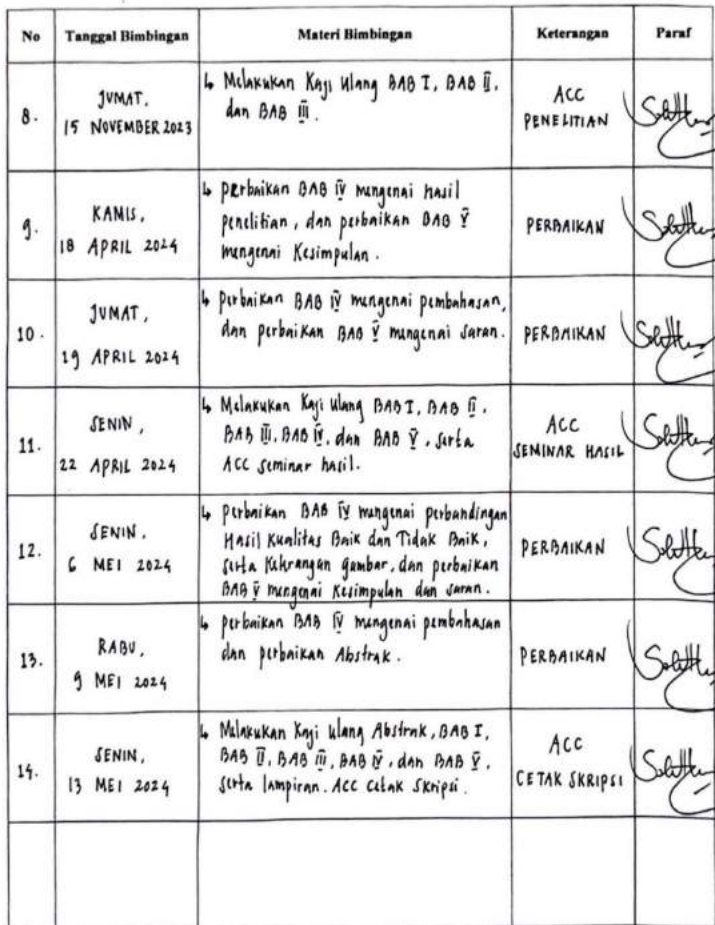 No Tanggal Bimbingan Materi Bimbingan Keterangan Paraf
8. JUMAT, 15 NOVEMBER 2023
↳ Melakukan Kaji Ulang BAB I, BAB II,
dan BAB III.
ACC
PENELITIAN
9. KAMIS,
18 APRIL 2024
↳ Perbaikan BAB IV mengenai hasil
penelitian, dan perbaikan BAB V
mengenai Kesimpulan.
PERBAIKAN
10. JUMAT,
19 APRIL 2024
↳ Perbaikan BAB IV mengenai pembahasan,
dan perbaikan BAB V mengenai saran.
PERBAIKAN
11. SENIN,
22 APRIL 2024
↳ Melakukan Kaji Ulang BAB I, BAB II,
BAB III, BAB IV, dan BAB V, serta
ACC seminar hasil.
ACC
SEMINAR HASIL
12. SENIN,
6 MEI 2024
↳ perbaikan BAB IV mengenai perbandingan
Hasil Kualitas Baik dan Tidak Baik,
serta Keterangan gambar, dan perbaikan
BAB V mengenai Kesimpulan dan saran.
PERBAIKAN
13. RABU,
9 MEI 2024
↳ perbaikan BAB IV mengenai pembahasan
dan perbaikan Abstrak.
PERBAIKAN
14. SENIN,
13 MEI 2024
↳ Melakukan Kaji Ulang Abstrak, BAB I,
BAB II, BAB III, BAB IV, dan BAB V,
serta lampiran. ACC Cetak Skripsi.
ACC
CETAK SKRIPSI